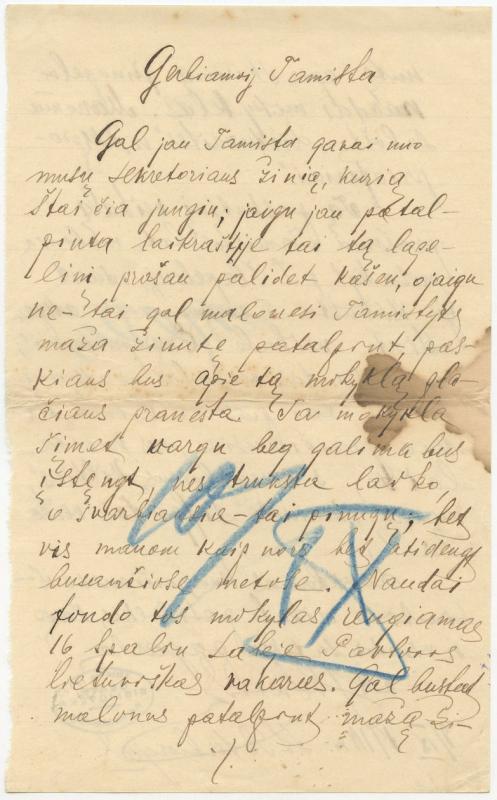 Gerbiamoij Tamista
Gal jau Tamista gavai nuo
musų sekretoriaus žinią, kurią
štai čia jungiu; jaigu jau patal-
pinta laikraštije tai tą lape-
lini prošau palidet kašen, o jaigu
ne-tai gal malonesi Tamistytę
maža žinutę patalpint, pas-
kiaus bus apie tą mokyklą pla-
čiaus pranešta. Ta mokykla
šimet vargu beg galima bus
ištengt, nes truksta laiko,
o svarbiausia-tai pinugų; bet
vis manom kaip nors bet atidengt
busančiose metose. Naudai
fondo tos mokylas rengiamas
16 spalių salėje Pavlovos
lietuviškas vakaras. Gal bustat
malonus patalpint mažą ži-